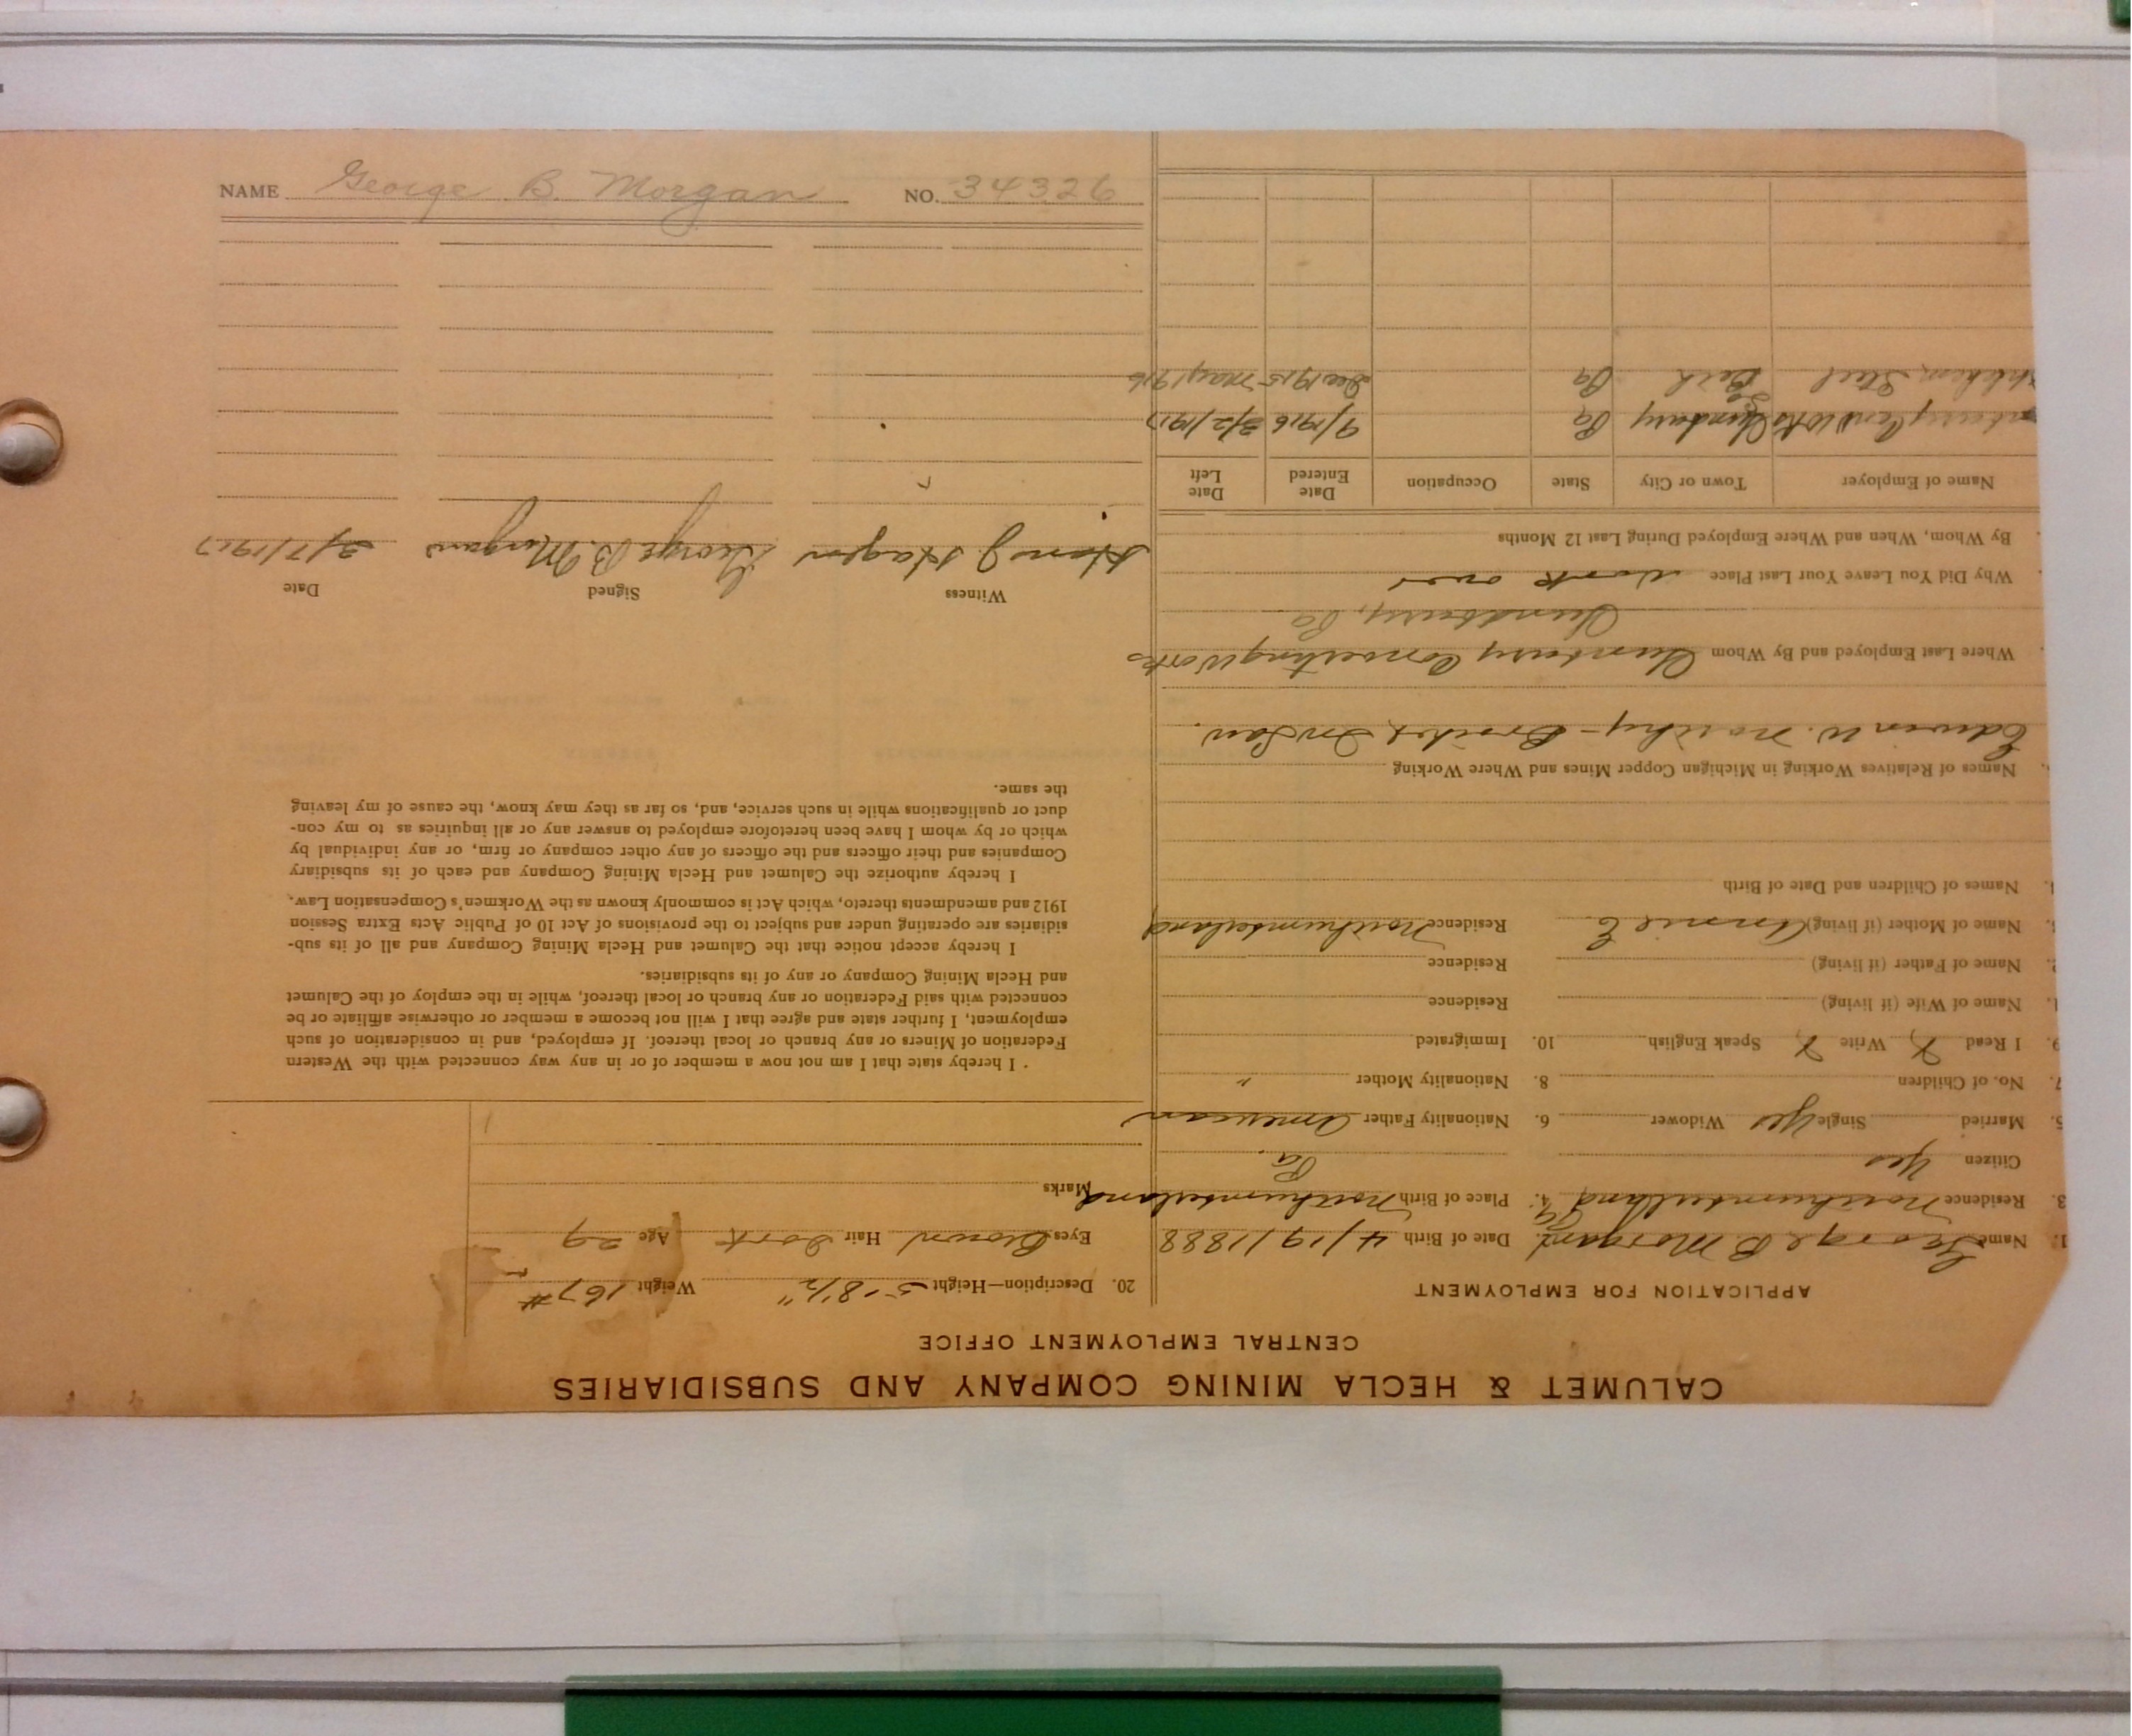 CALUMET & HECLA MINING COMPANY AND SUBSIDIARIES
CENTRAL EMPLOYMENT OFFICE
APPLICATION FOR EMPLOYMENT
1. Name George B Morgan 2. Date of Birth 4/19/1888
3. Residence Northumberland Pa 4. Place of Birth Northumberland Pa.
Citizen Yes
5. Married Single Yes Widower 6. Nationality Father American
7. No. of Children 8. Nationality Mother "
9. I Read X Write X Speak English 10. Immigrated
Name of Wife (if living) Residence
Name of Father (if living) Residence
Name of Mother (if living) Annie E. Residence Northumberland
Names of Children and Date of Birth
Names of Relatives Working in Michigan Copper Mines and Where Working
Edwin W. - Brother In Law.
Where Last Employed and By Whom Sunbury Converting Works
Sunbury, Pa
Why Did You Leave Your Last Place Work over
By Whom, When and Where Employed During Last 12 Months
Name of Employer Town or City State Occupation Date Entered Date Left
Works Sunbury Pa 9/1916 3/2/1917
Steel So Beth Pa Dec 1915 May 1916
20. Description—Height 5-8½" Weight 167#
Eyes Brown Hair Dark Age 29
Marks
I hereby state that I am not now a member of or in any way connected with the Western
Federation of Miners or any branch or local thereof. If employed, and in consideration of such
employment, I further state and agree that I will not become a member or otherwise affiliate or be
connected with said Federation or any branch or local thereof, while in the employ of the Calumet
and Hecla Mining Company or any of its subsidiaries.
I hereby accept notice that the Calumet and Hecla Mining Company and all of its sub-
sidiaries are operating under and subject to the provisions of Act 10 of Public Acts Extra Session
1912 and amendments thereto, which Act is commonly known as the Workmen's Compensation Law.
I hereby authorize the Calumet and Hecla Mining Company and each of its subsidiary
Companies and their officers and the officers of any other company or firm, or any individual by
which or by whom I have been heretofore employed to answer any or all inquiries as to my con-
duct or qualifications while in such service, and, so far as they may know, the cause of my leaving
the same.
Witness Signed Date
J. Hagen George B. Morgan 3/7/1917
NAME George B. Morgan NO. 34326